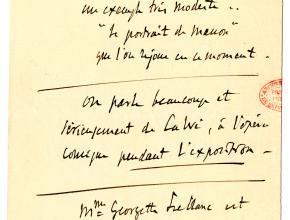 un exemple très modeste ..
"Le portrait de Manon"
que l'on rejoue en ce moment.
On parle beaucoup et
sérieusement de Calvé, à l'opéra
comique pendant l'exposition -
Mme Georgette Leblanc est